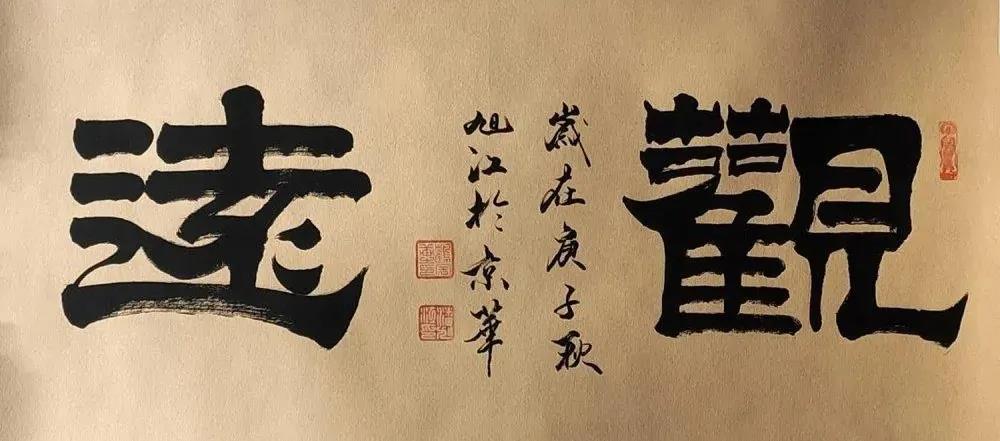 觀
歲在庚子秋
旭江於京華
遠